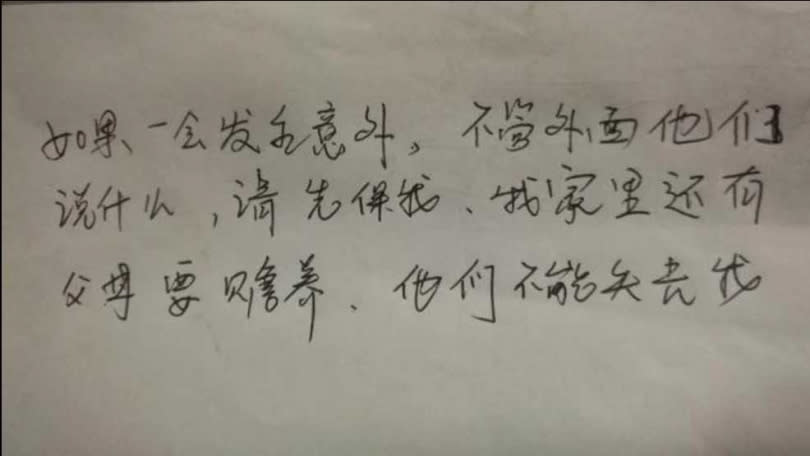 如果一会发生意外，不管外面他们
说什么，请先保我、我家里还有
父母要赡养、他们不能失去我